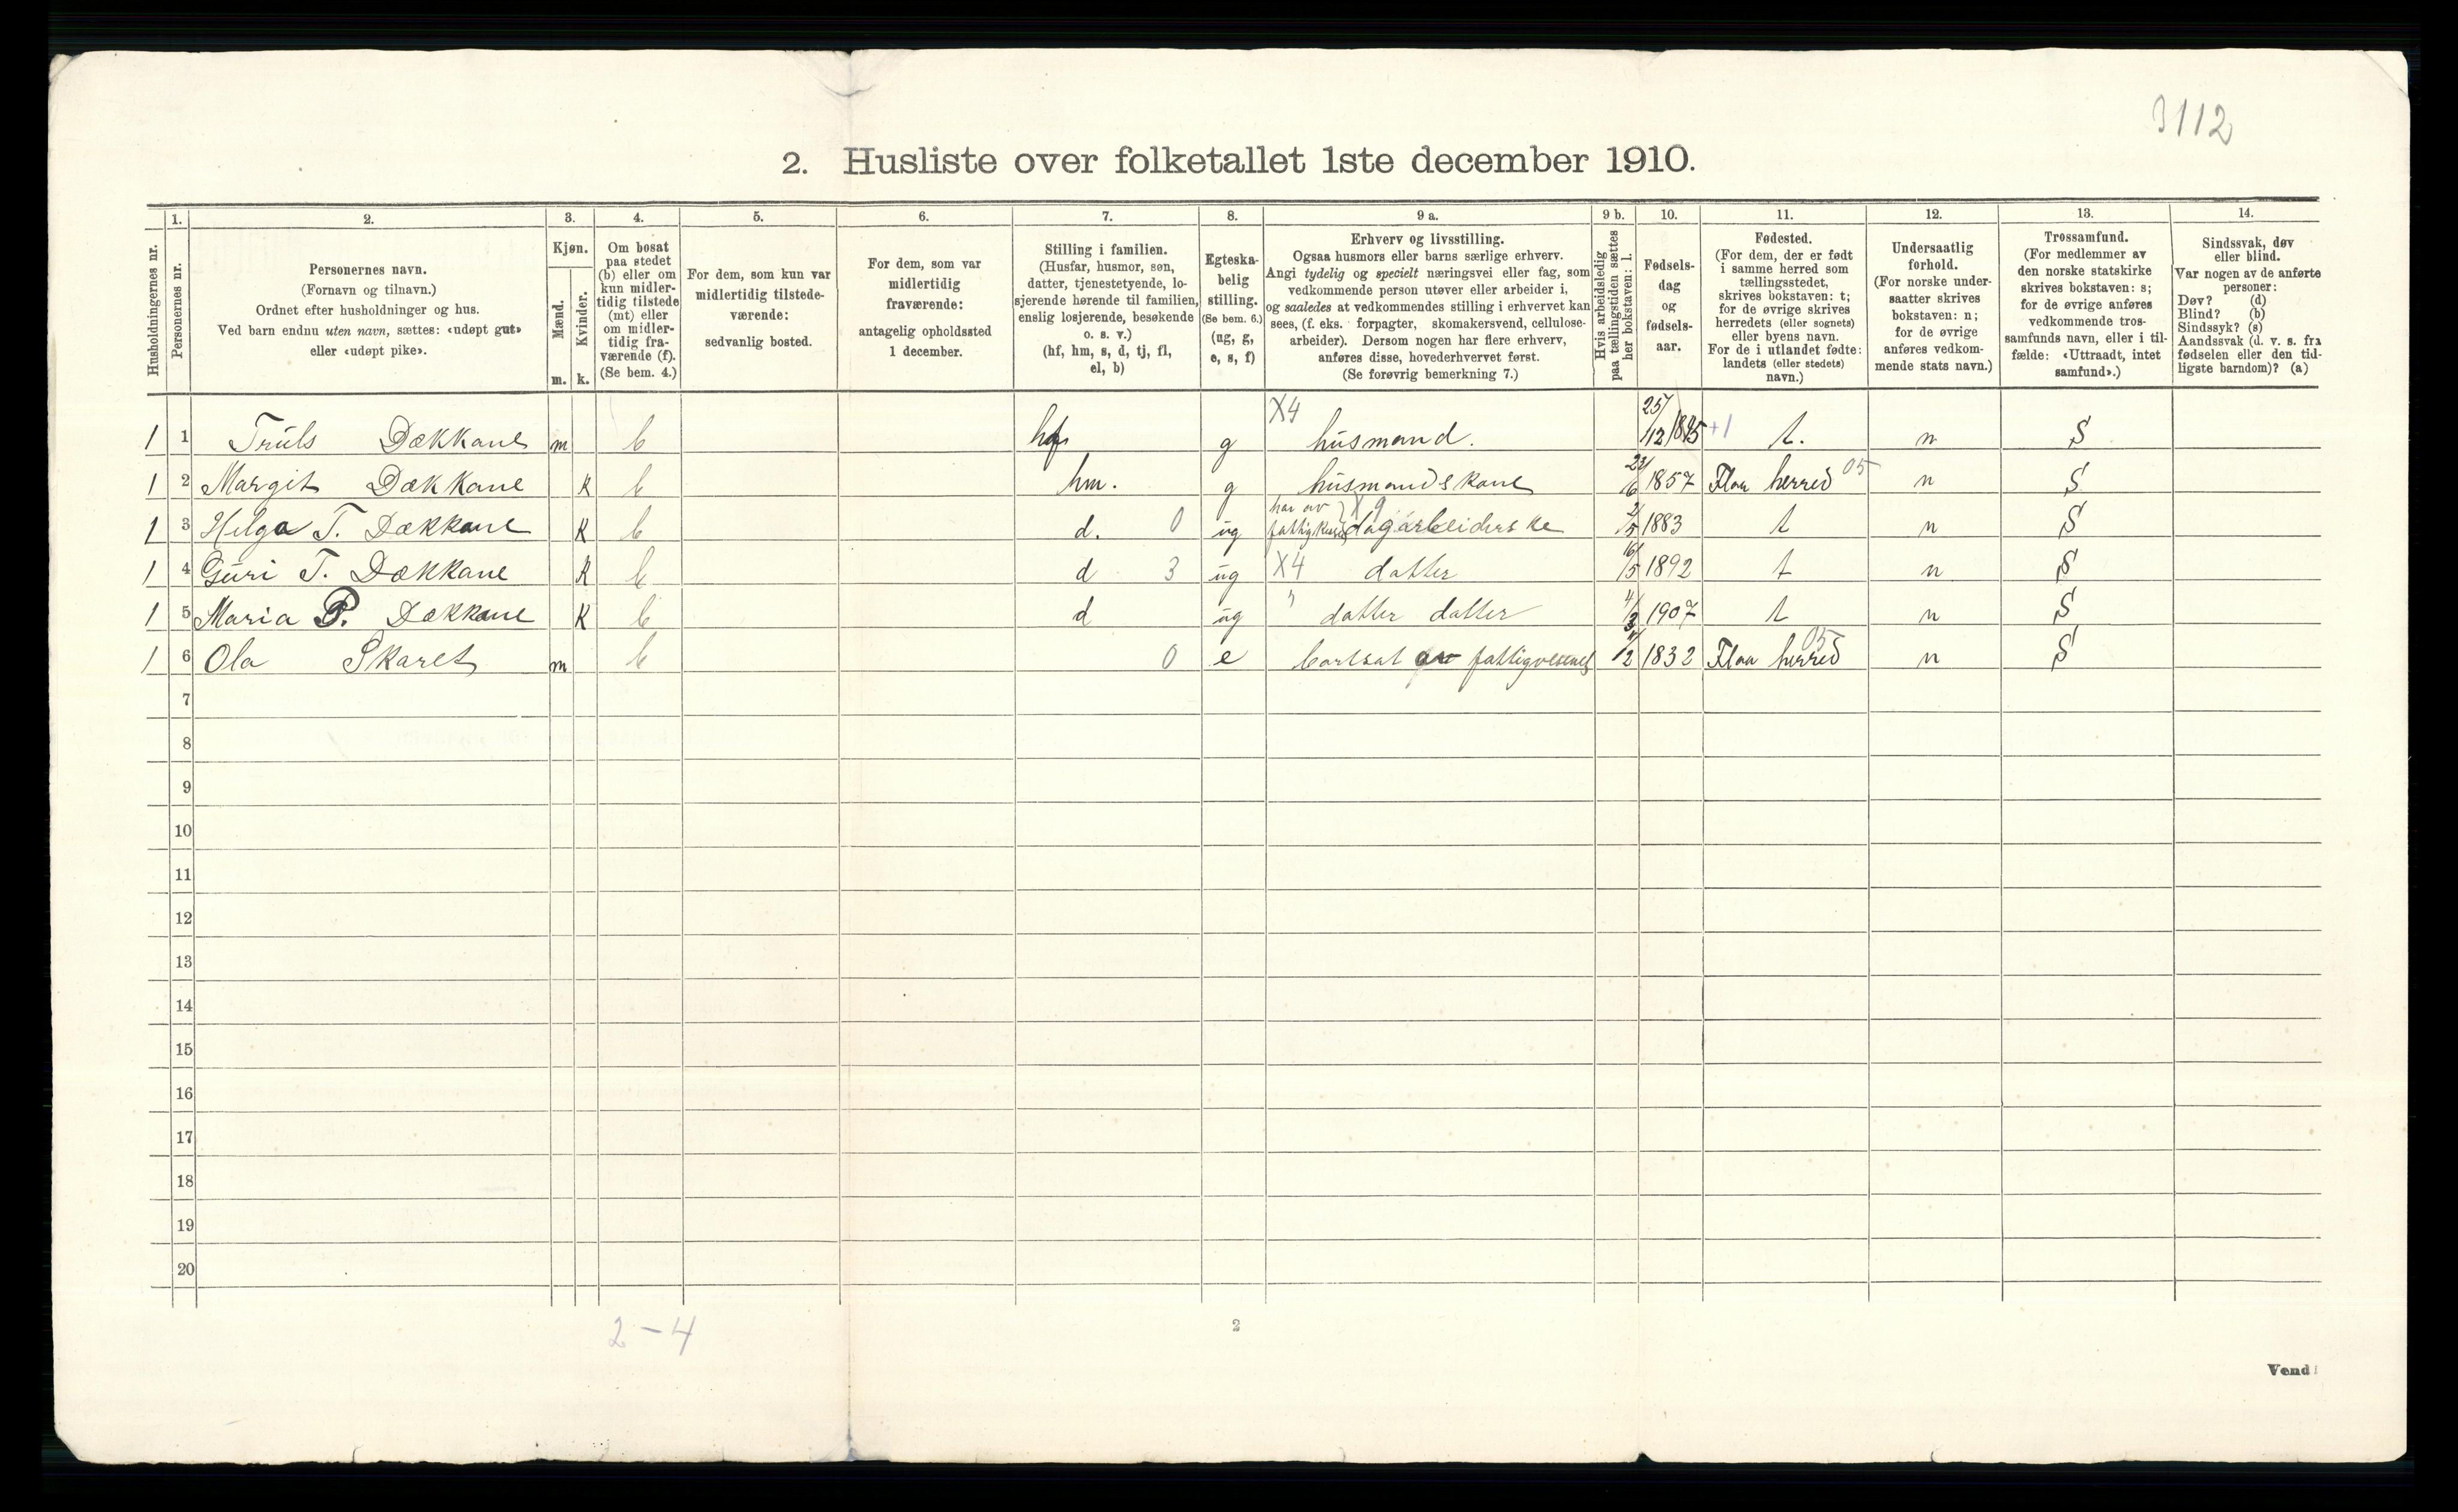 3112
2. Husliste over folketallet 1ste december 1910.
1. 2. 3. 4. 5. 6. 7. 8. 9 a. 9 b. 10. 11. 12. 13. 14.
Husholdningernes nr.
Personernes nr.
Personernes navn.
(Fornavn og tilnavn.)
Ordnet efter husholdninger og hus.
Ved barn endnu uten navn, sættes: «udøpt gut»
eller «udøpt pike».
Kjøn.
Mænd.
Kvinder.
m. k.
Om bosat
paa stedet
(b) eller om
kun midler-
tidig tilstede
(mt) eller
om midler-
tidig fra-
værende (f).
(Se bem. 4.)
For dem, som kun var
midlertidig tilstede-
værende:
sedvanlig bosted.
For dem, som var
midlertidig
fraværende:
antagelig opholdssted
1 december.
Stilling i familien.
(Husfar, husmor, søn,
datter, tjenestetyende, lo-
sjerende hørende til familien,
enslig losjerende, besøkende
o. s. v.)
(hf, hm, s, d, tj, fl,
el, b)
Egteska-
belig
stilling.
(Se bem. 6.)
(ug, g,
e, s, f)
Erhverv og livsstilling.
Ogsaa husmors eller barns særlige erhverv.
Angi tydelig og specielt næringsvei eller fag, som
vedkommende person utøver eller arbeider i,
og saaledes at vedkommendes stilling i erhvervet kan
sees, (f. eks. forpagter, skomakersvend, cellulose-
arbeider). Dersom nogen har flere erhverv,
anføres disse, hovederhvervet først.
(Se forøvrig bemerkning 7.)
Hvis arbeidsledig
paa tællingstiden sættes
her bokstaven: l.
Fødsels-
dag
og
fødsels-
aar.
Fødested.
(For dem, der er født
i samme herred som
tællingsstedet,
skrives bokstaven: t;
for de øvrige skrives
herredets (eller sognets)
eller byens navn.
For de i utlandet fødte:
landets (eller stedets)
navn.)
Undersaatlig
forhold.
(For norske under-
saatter skrives
bokstaven: n;
for de øvrige
anføres vedkom-
mende stats navn.)
Trossamfund.
(For medlemmer av
den norske statskirke
skrives bokstaven: s;
for de øvrige anføres
vedkommende tros-
samfunds navn, eller i til-
fælde: «Uttraadt, intet
samfund».)
Sindssvak, døv
eller blind.
Var nogen av de anførte
personer:
Døv? (d)
Blind? (b)
Sindssyk? (s)
Aandssvak (d. v. s. fra
fødselen eller den tid-
ligste barndom)? (a)
1 1 Truls Dækkane m b hf g X4 husmand. 25/12 +1 t. n S
1 2 Margit Dækkane k b hm. g husmandskone 1857 Flaa herred 05 n S
1 3 Helga T. Dækkane k b d. 0 ug har av fattigkasse X9 dagarbeiderske 2/5 1883 t n S
1 4 Guri T. Dækkane k b d 3 ug X4 datter 16/5 1892 t n S
1 5 Maria P. Dækkane k b d ug " datter datter 1907 t n S
1 6 Ola Skaret m b 0 e bortsat av fattigvesenet 1832 Flaa herred 05 n S
7
8
9
10
11
12
13
14
15
16
17
18
19
20
2-4
2
Vend